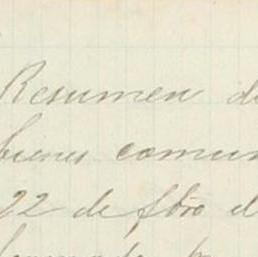 Resumen d
bienes comun
22 de fbro d